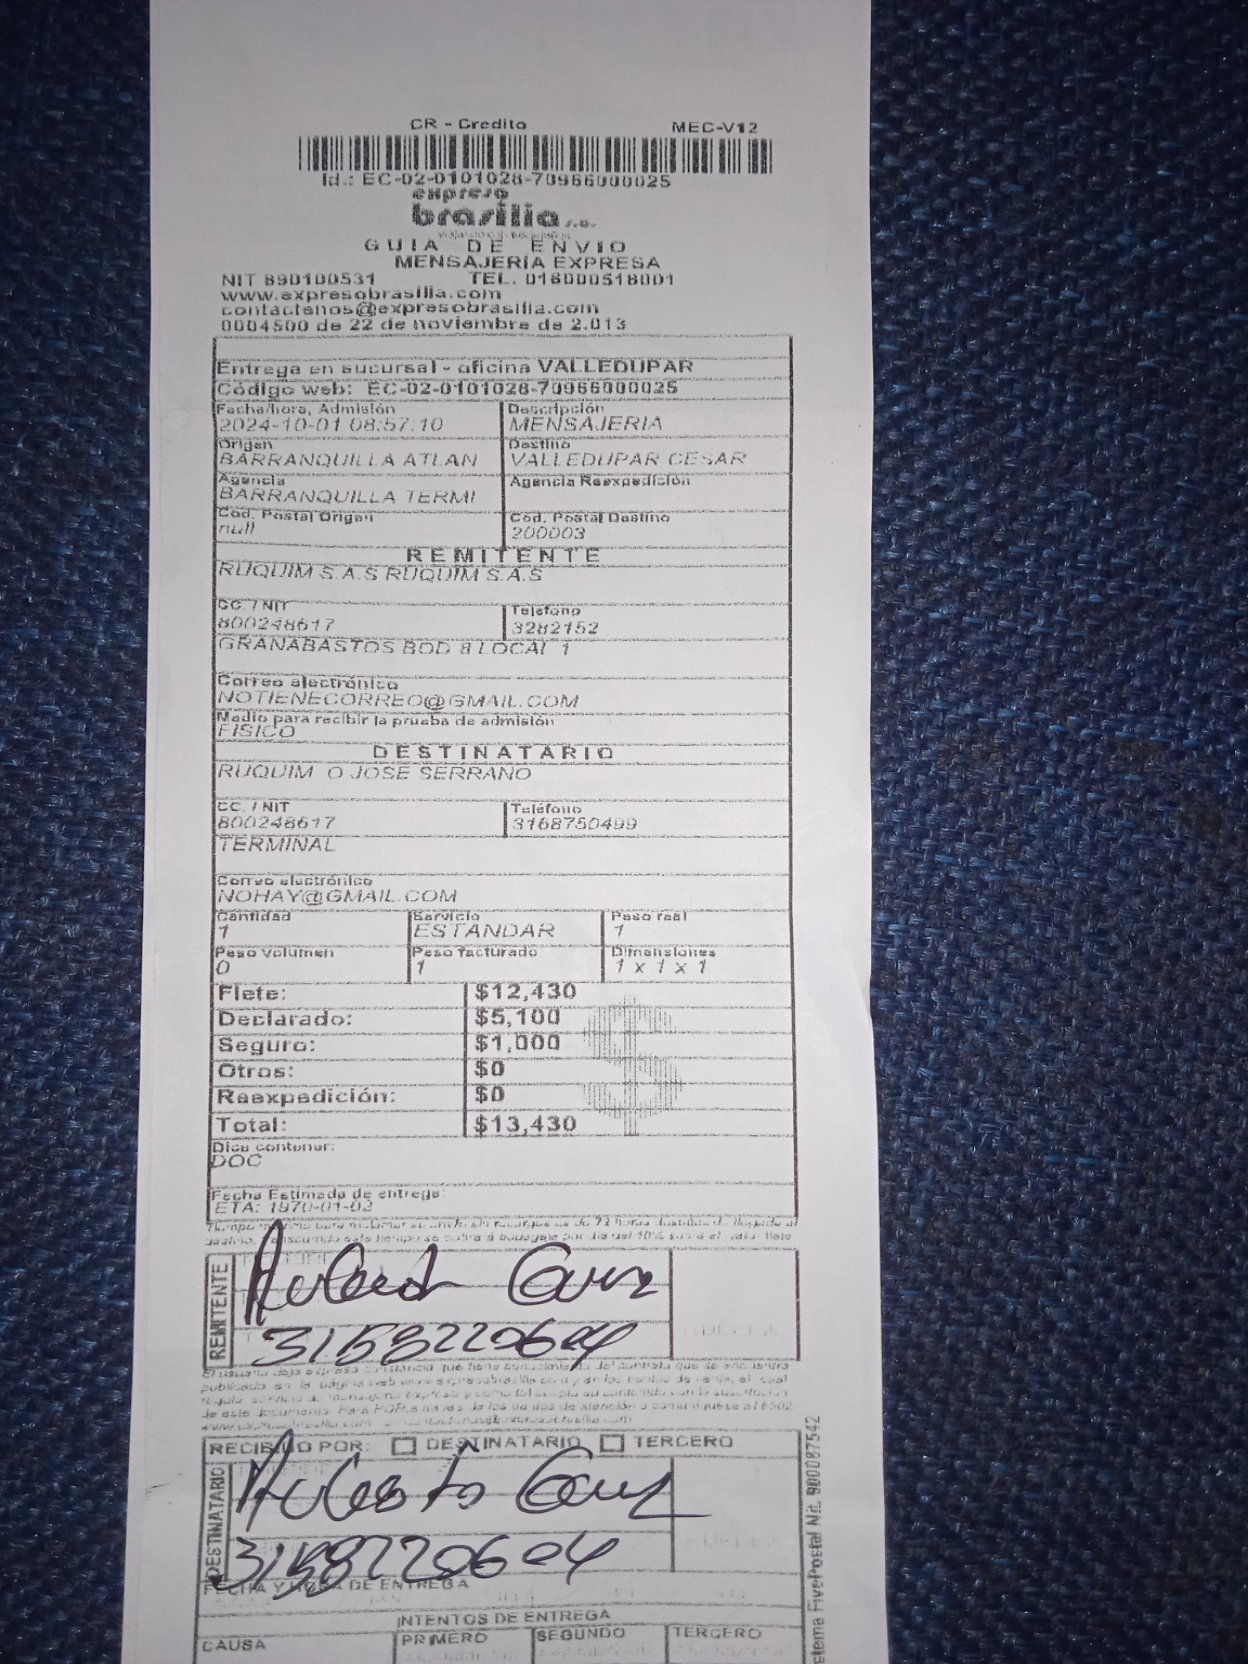 CR - Credito MEC-V12
Id.: EC-02-0101028-70966000025
expreso
brasilia s.a.
GUIA DE ENVIO
MENSAJERÍA EXPRESA
NIT 890100531 TEL. 018000518001
www.expresobrasilia.com
contactenos@expresobrasilia.com
0004500 de 22 de noviembre de 2.013
Entrega en sucursal - oficina VALLEDUPAR
Código web: EC-02-0101028-70966000025
Fecha/hora, Admisión Descripción
2024-10-01 08:57:10 MENSAJERIA
Origen Destino
BARRANQUILLA ATLAN VALLEDUPAR CESAR
Agencia Agencia Reexpedición
BARRANQUILLA TERMI
Cod. Postal Origen Cod. Postal Destino
null 200003
REMITENTE
RUQUIM S.A.S RUQUIM S.A.S
CC. / NIT Teléfono
800248617 3282152
GRANABASTOS BOD 8 LOCAL 1
Correo electrónico
NOTIENECORREO@GMAIL.COM
Medio para recibir la prueba de admisión
FISICO
DESTINATARIO
RUQUIM O JOSE SERRANO
CC. / NIT Teléfono
800248617 3168750499
TERMINAL
Correo electrónico
NOHAY@GMAIL.COM
Cantidad Servicio Peso real
1 ESTANDAR 1
Peso Volumen Peso facturado Dimensiones
0 1 1 x 1 x 1
Flete: $12,430
Declarado: $5,100
Seguro: $1,000
Otros: $0
Reexpedición: $0
Total: $13,430
$
Dice contener:
DOC
Fecha Estimada de entrega:
ETA: 1970-01-02
REMITENTE
3158220604
El usuario deja expresa constancia que tiene conocimiento del contrato que se encuentra
publicado en la página web www.expresobrasilia.com y en los puntos de venta, el cual
RECIBIDO POR: DESTINATARIO TERCERO
DESTINATARIO
3158220604
FECHA Y HORA DE ENTREGA
INTENTOS DE ENTREGA
CAUSA PRIMERO SEGUNDO TERCERO
stema FivePostal Nit. 900087542